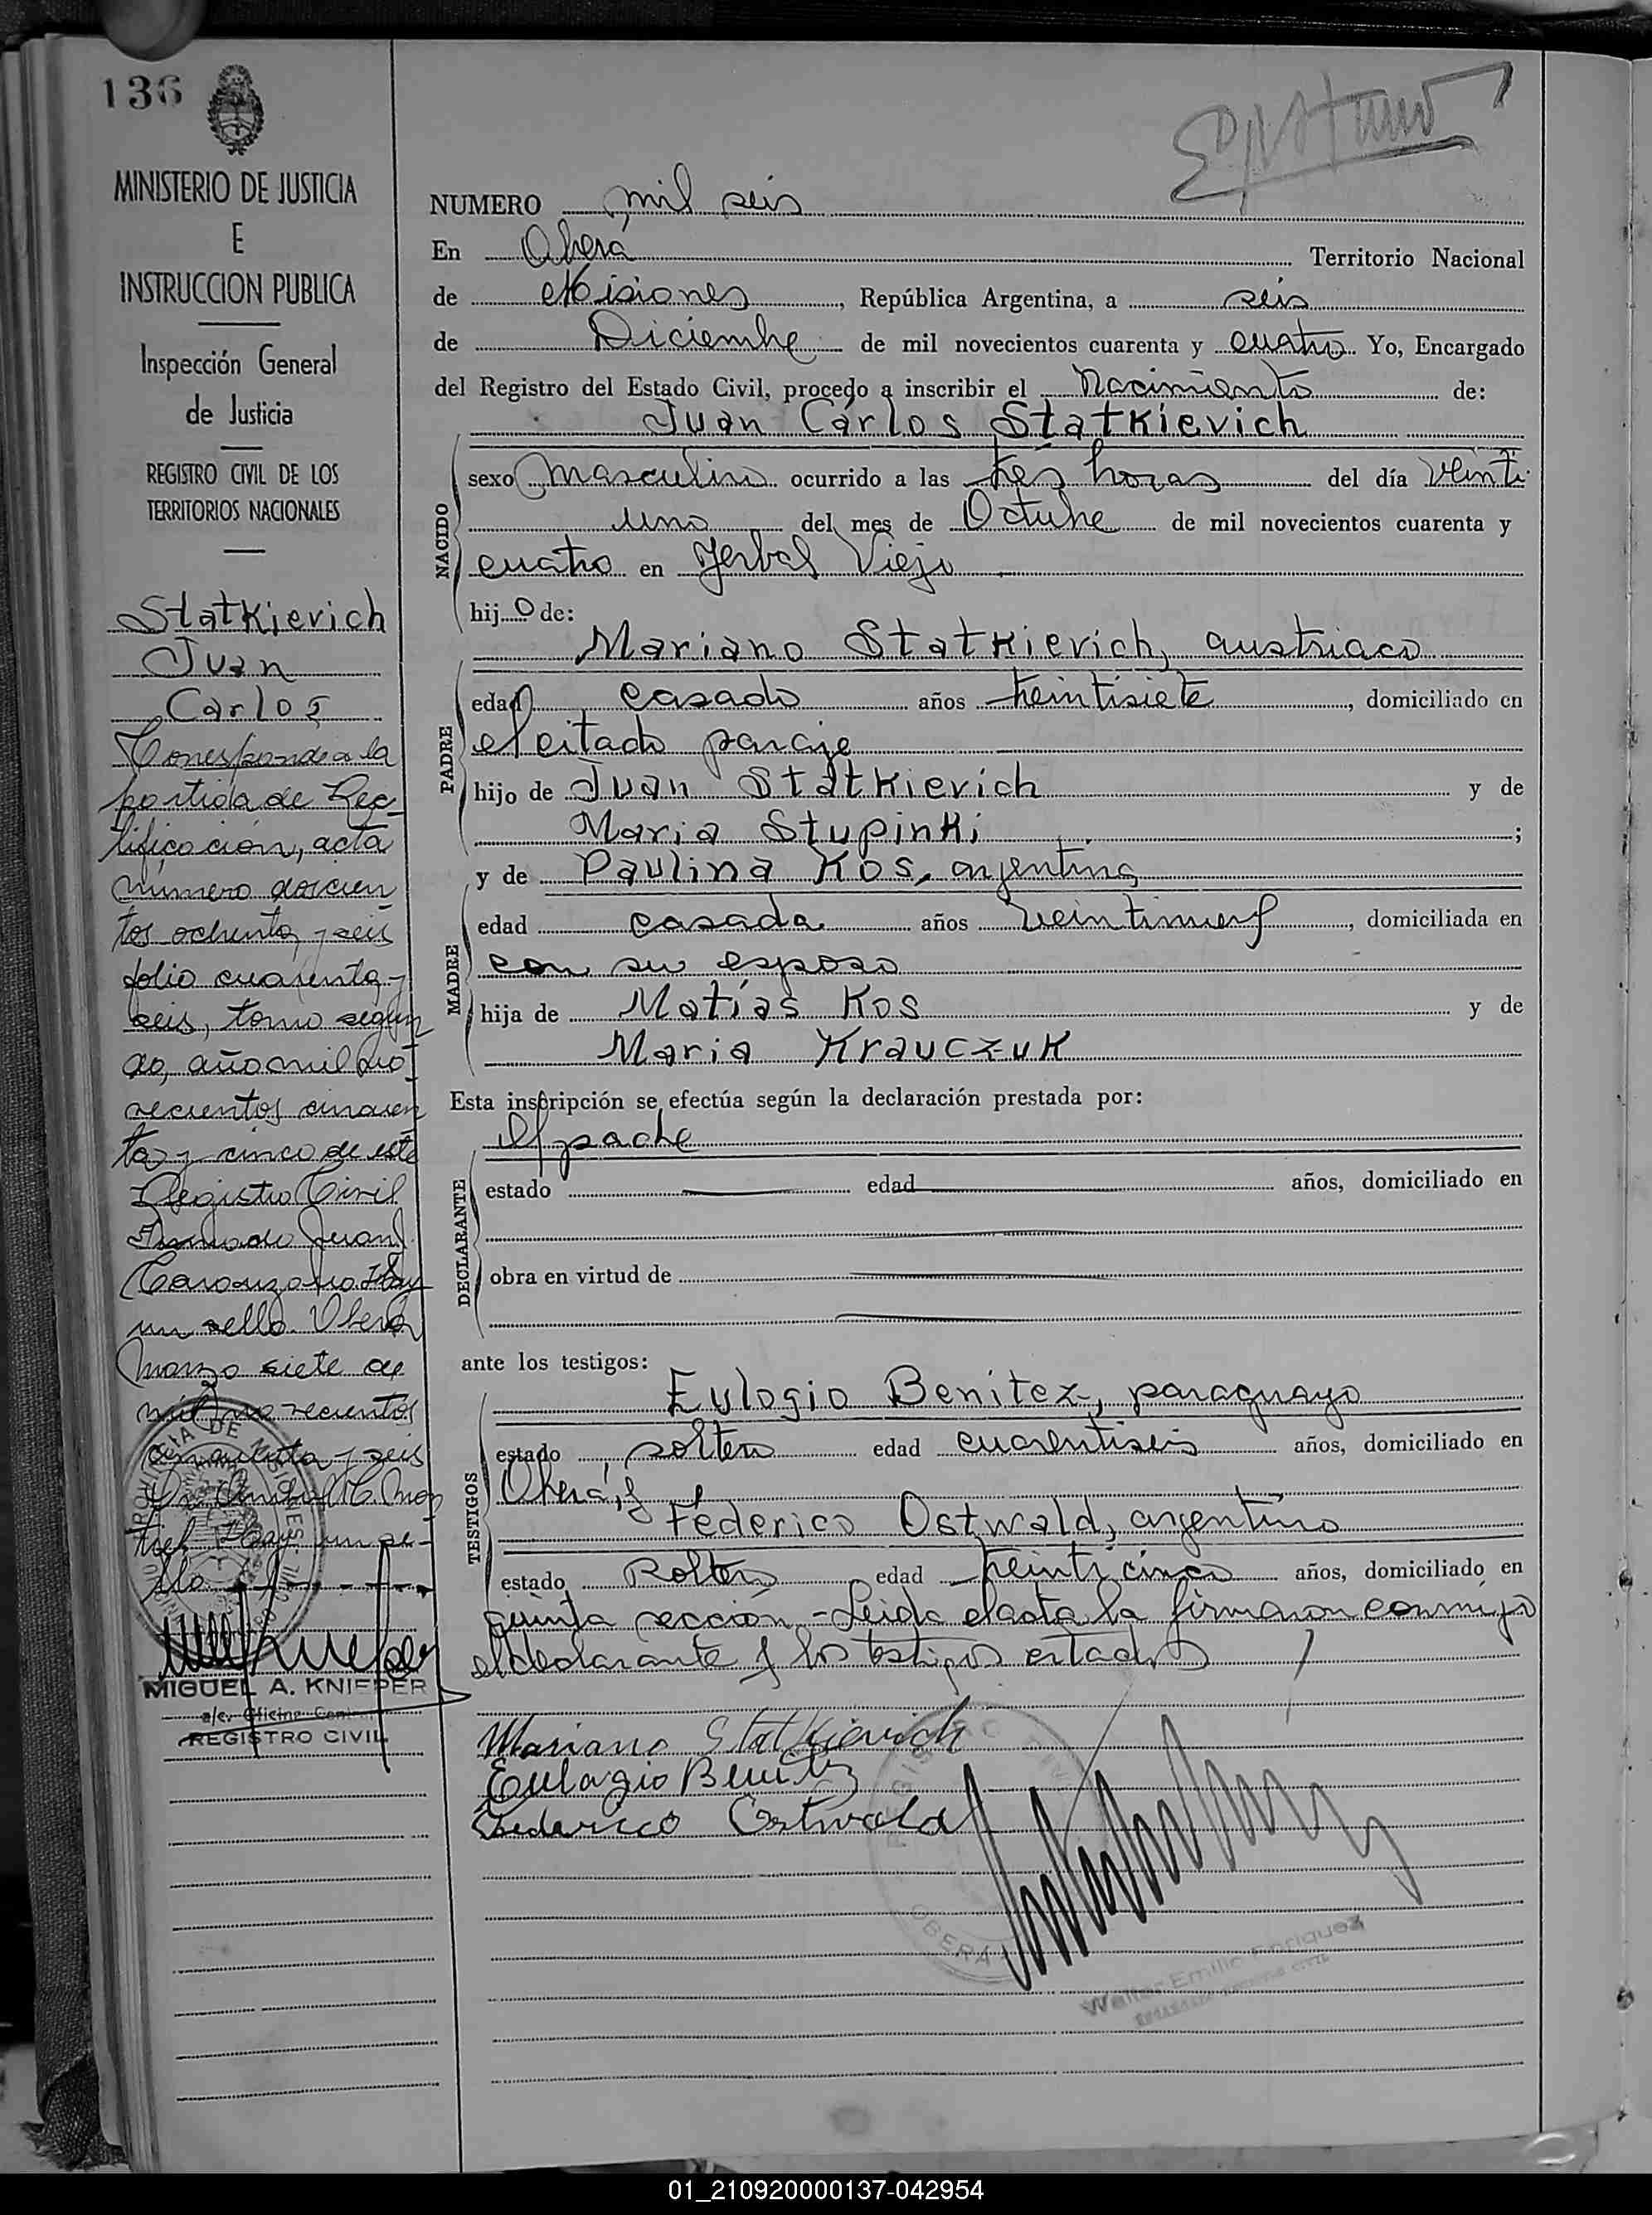 136
MINISTERIO DE JUSTICIA
E
INSTRUCCION PUBLICA
Inspección General
de Justicia
REGISTRO CIVIL DE LOS
TERRITORIOS NACIONALES
Statkievich
Juan
Carlos
Corresponde a la
partida de Rec-
tificación, acta
número doscien
tos ochenta y seis
folio cuarenta y
seis, tomo segun
do, año mil no-
vecientos cincuen
ta y cinco de este
Registro Civil
Firmado Juan
Hay
un sello. Oberá
Marzo siete de
mil novecientos
cincuenta y seis
Hay un se-
llo
MIGUEL A. KNIEPER
a/c. Oficina
REGISTRO CIVIL
NUMERO mil seis
En Oberá Territorio Nacional
de Misiones, República Argentina, a seis
de Diciembre de mil novecientos cuarenta y cuatro Yo, Encargado
del Registro del Estado Civil, procedo a inscribir el Nacimiento de:
Juan Carlos Statkievich
NACIDO
sexo masculino ocurrido a las tres horas del día veinti
uno del mes de Octubre de mil novecientos cuarenta y
cuatro en Yerbal Viejo
hij o de:
Mariano Statkievich, austriaco
PADRE
edad casado años treintisiete, domiciliado en
el citado paraje
hijo de Juan Statkievich y de
Maria Stupinki;
y de Paulina Kos, argentina
MADRE
edad casada años veintinueve, domiciliada en
con su esposo
hija de Matías Kos y de
Maria Krauczuk
Esta inscripción se efectúa según la declaración prestada por:
el padre
DECLARANTE
estado edad años, domiciliado en
obra en virtud de
ante los testigos:
Eulogio Benitez, paraguayo
TESTIGOS
estado soltero edad cuarentiseis años, domiciliado en
Oberá, y
Federico Ostwald, argentino
estado soltero edad treinticinco años, domiciliado en
quinta sección - Leída el acta la firmaron conmigo
el declarante y los testigos citados
Mariano Statkievich
Eulogio Benitez
Federico Ostwald
OBERA
Walter Emilio Enriquez
01_210920000137-042954